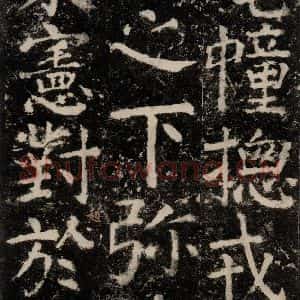 幢摠戎
之下弥
憲對於
shufawang.cn